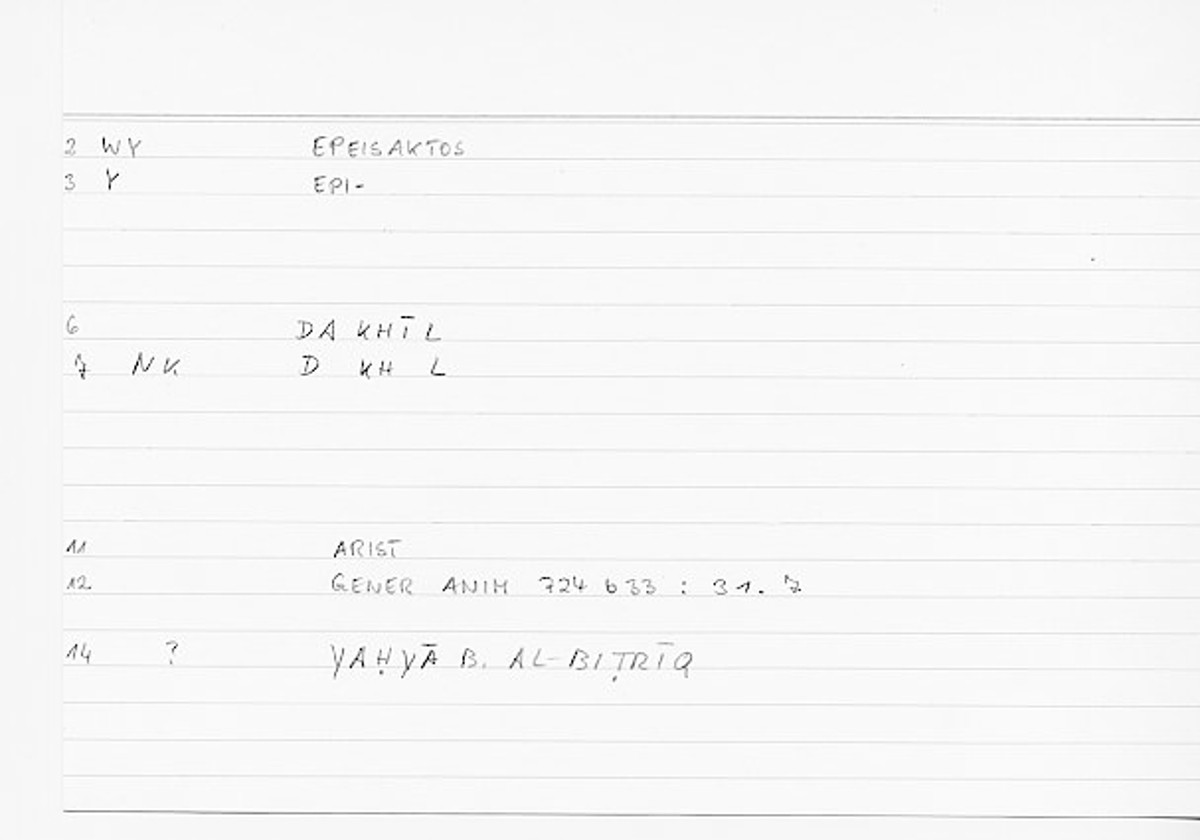 2 WY EPEISAKTOS
3 Y EPI-
6 DA KHĪL
7 NK D KH L
11 ARIST
12 GENER ANIM 724 b 33 : 31.7
14 ? YAḤYĀ B. AL-BIṬRĪQ